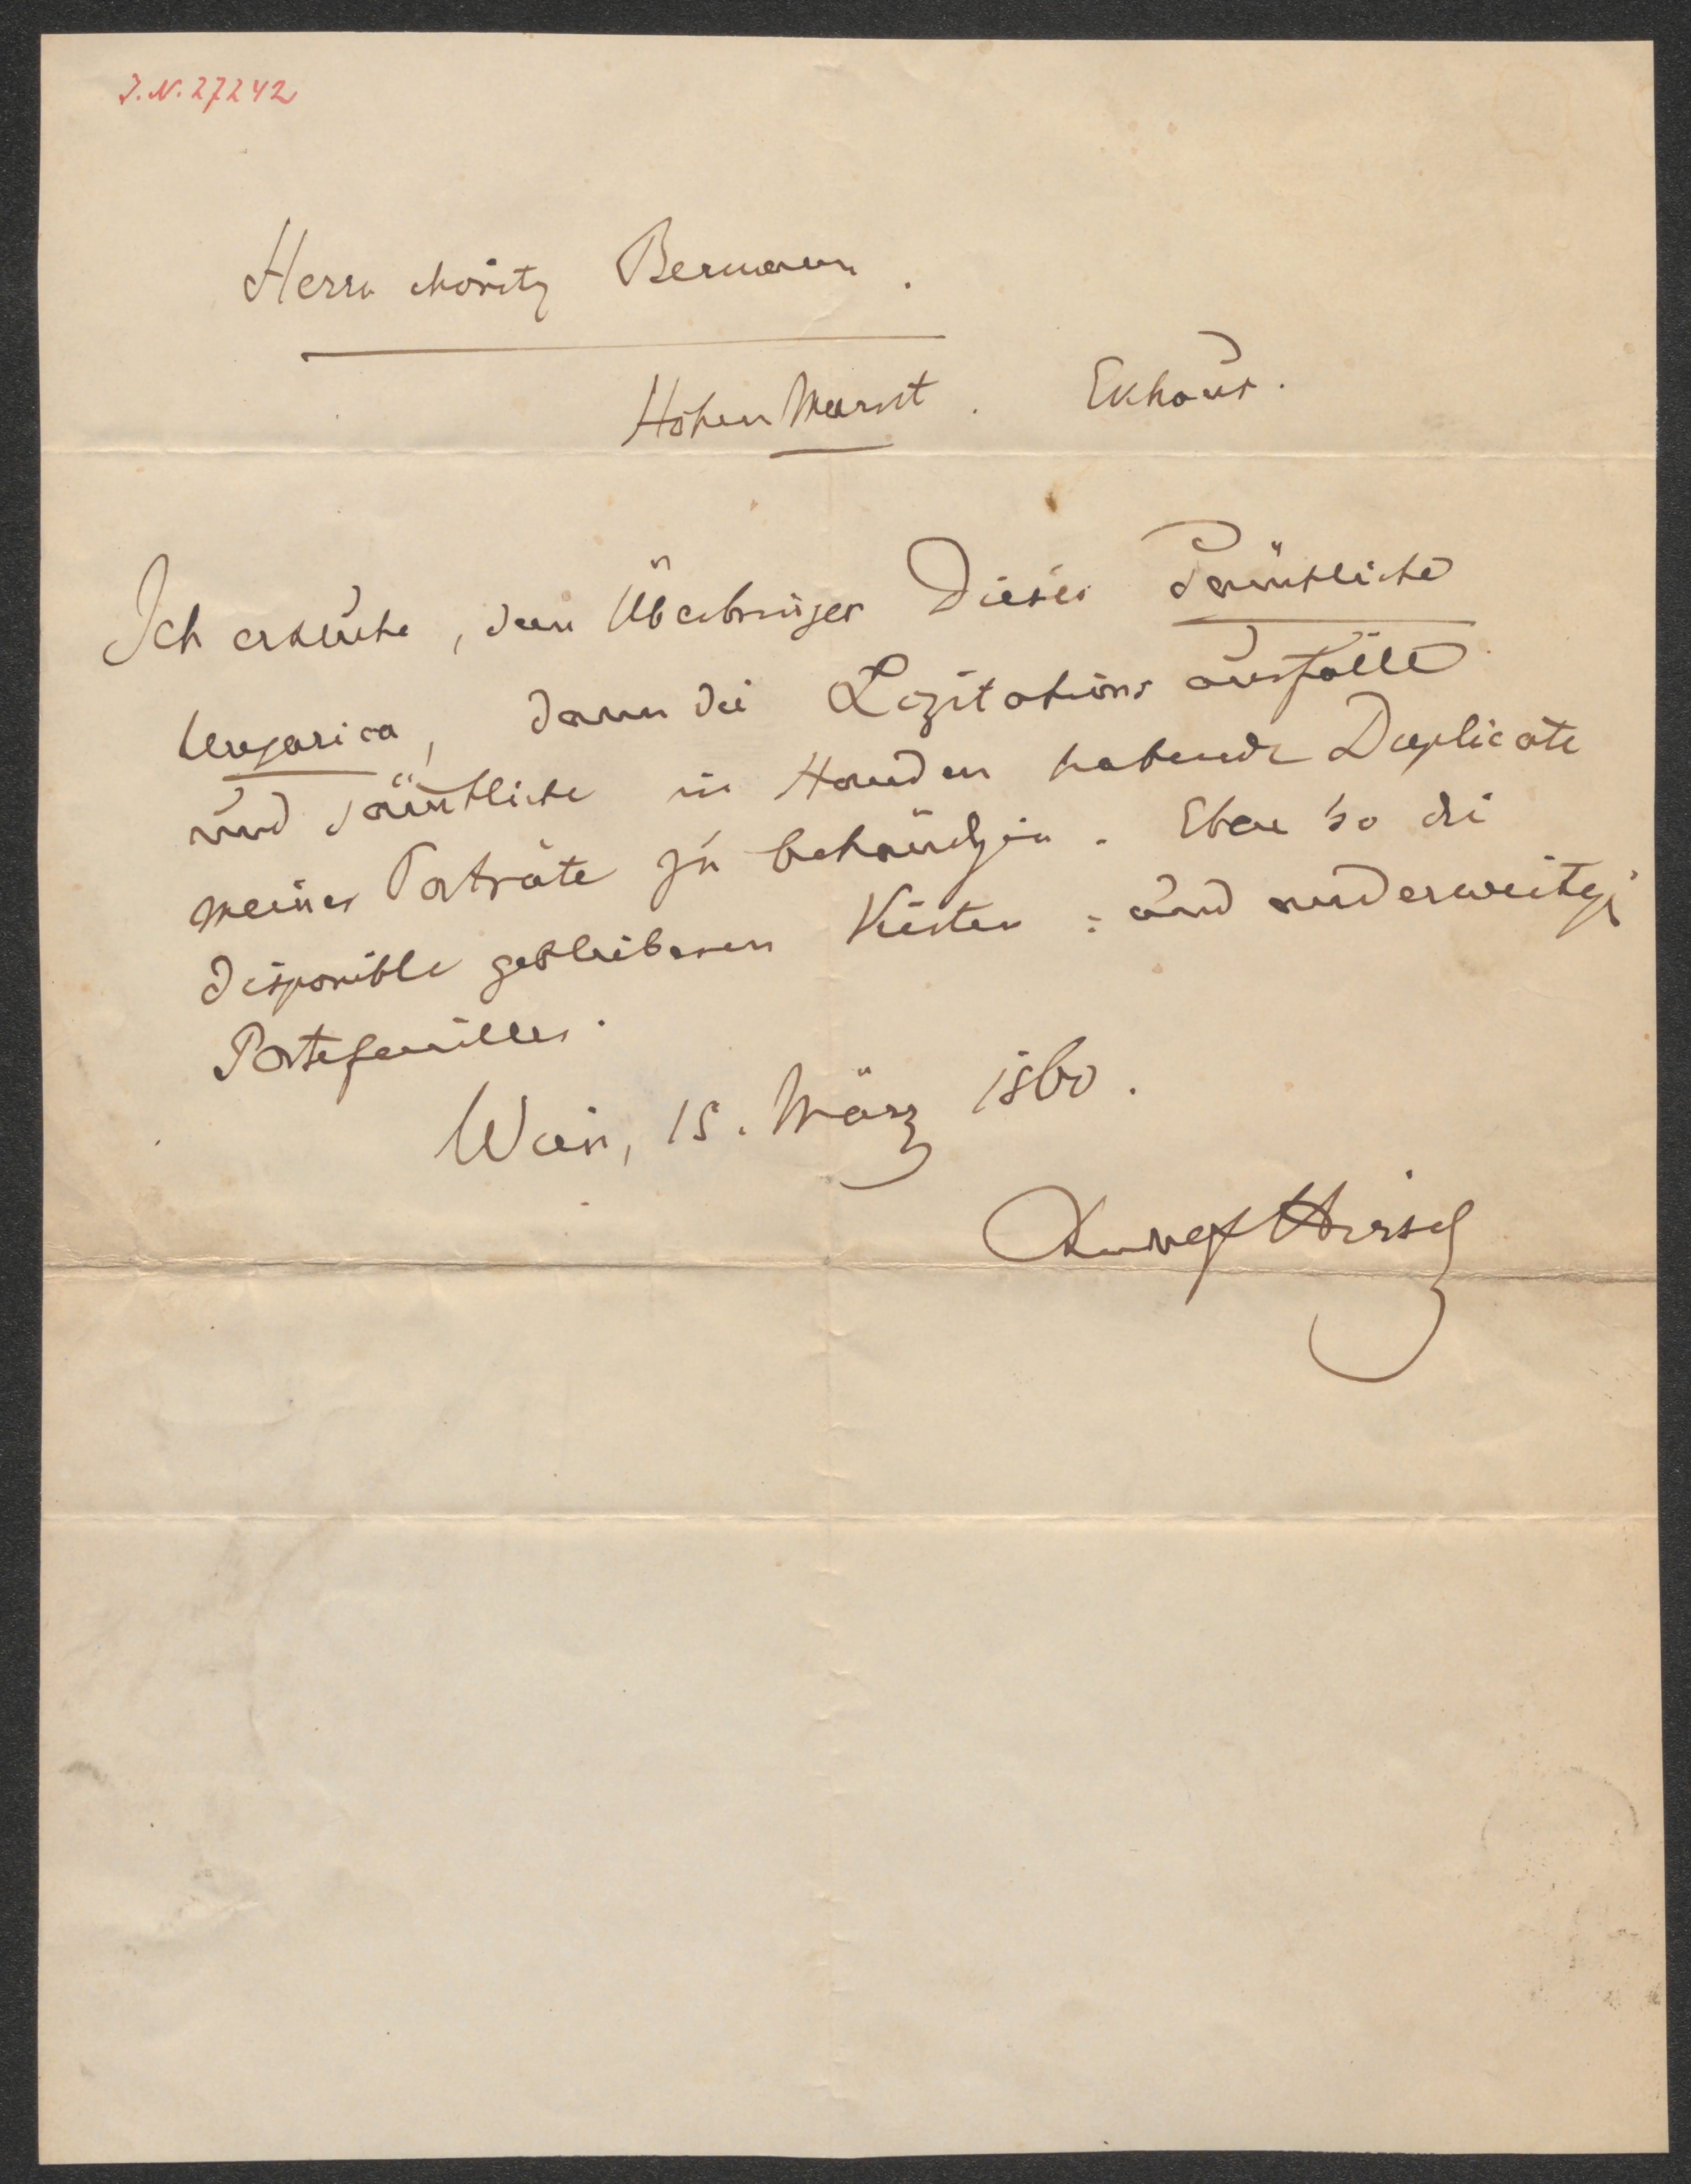 J.N. 27242
Herrn Moritz Bermann.
Hohen Markt. Ekhaus.
Ich ersuche, dem Überbringer dieses sämtliche
Ungarica, dann die Lizitations ausfälle
und sämtliche in Handen habende Duplicate
meines Porträte zu behändigen. Eben so die
disponible gebliebenen Kisten und anderweitige
Portefeuilles.
Wien, 15. März 1860.
Rudolf Hirsch